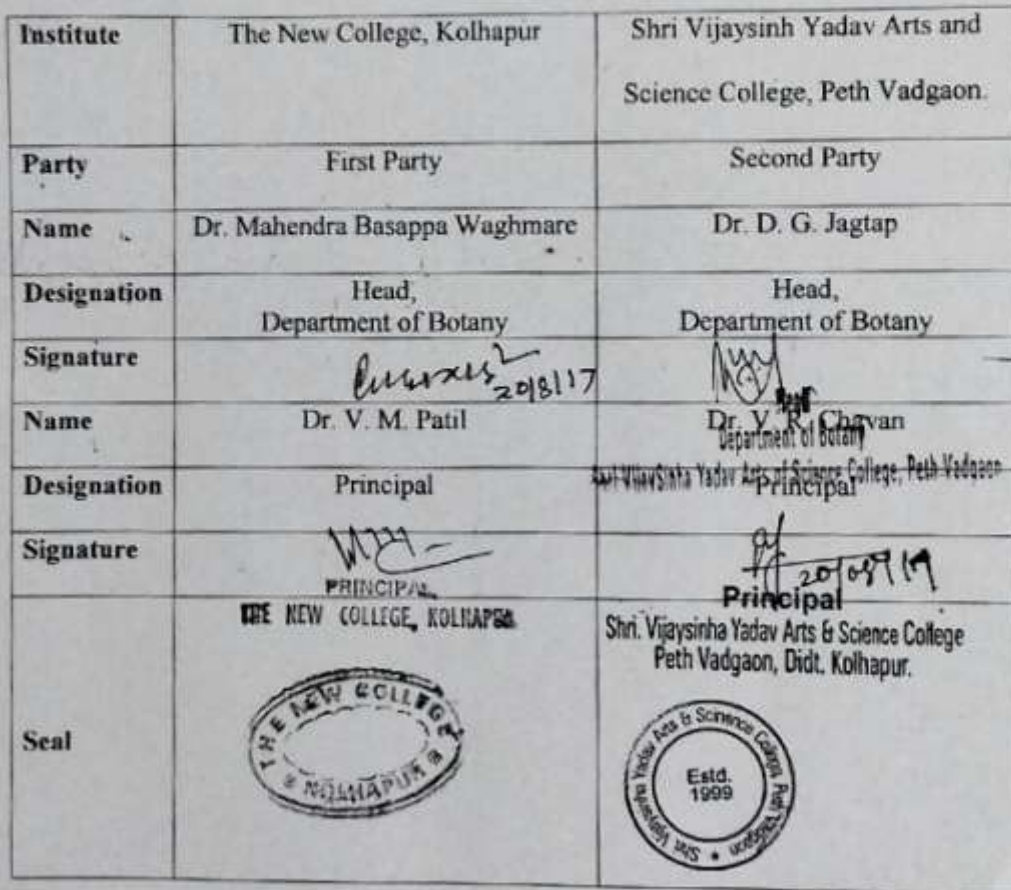 Institute
The New College, Kolhapur
Shri Vijaysinh Yadav Arts and
Science College, Peth Vadgaon.
Party
First Party
Second Party
Name
Dr. Mahendra Basappa Waghmare
Dr. D. G. Jagtap
Designation
Head,
Department of Botany
Head,
Department of Botany
Signature
20/8/17
Name
Dr. V. M. Patil
Dr. V. R. Chavan
Department of Botany
Designation
Principal
Yadav Arts of Science College, Peth Vadgaon
Principal
Signature
PRINCIPAL
THE NEW COLLEGE, KOLHAPUR
20/08/19
Principal
Shri. Vijaysinha Yadav Arts & Science College
Peth Vadgaon, Didt. Kolhapur.
Seal
THE NEW COLLEGE
KOLHAPUR
Shri Vijaysinha Yadav Arts & Scinence College Peth Vadgaon
Estd.
1999